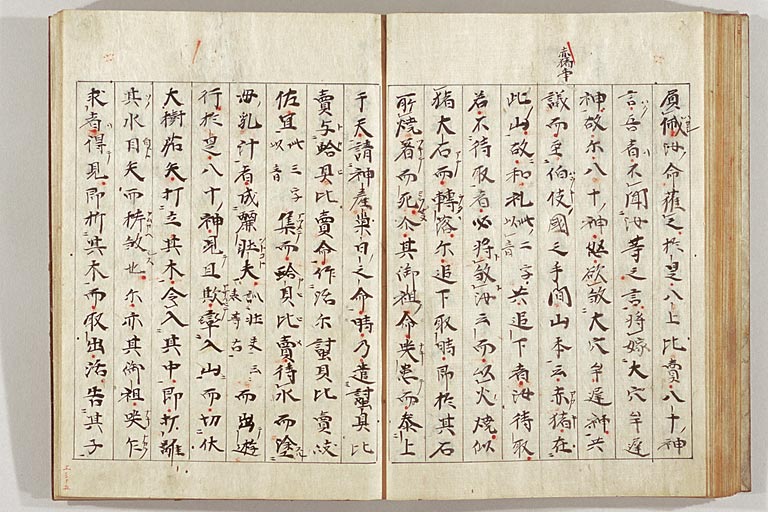 負帒汝命獲之於是八上比賣八十神
言吾者不聞汝等之言将嫁大穴牟遅
神故尒八十神怒欲殺大穴牟遅神共
議而至伯伎國之手間山本云赤猪在
此山故和礼此二字以音共追下者汝待取
若不待取者必将殺汝云而以火焼似
猪大石而轉落尒追下取時即於其石
所焼著而死尒其御祖命哭患而参上
于天請神産巣日之命時乃遣𧏛貝比
賣与蛤貝比賣命作活尒𧏛貝比賣岐
佐宜此三字以音集而蛤貝比賣待水而塗
母乳汁者成麗壮夫訓壮夫云袁等古而出遊
行於是八十神見且欺率入山而切伏
大樹茹矢打立其木令入其中即打離
其氷目矢而拷殺也尒亦其御祖哭乍
求者得見即折其木而取出活告其子
赤猪事